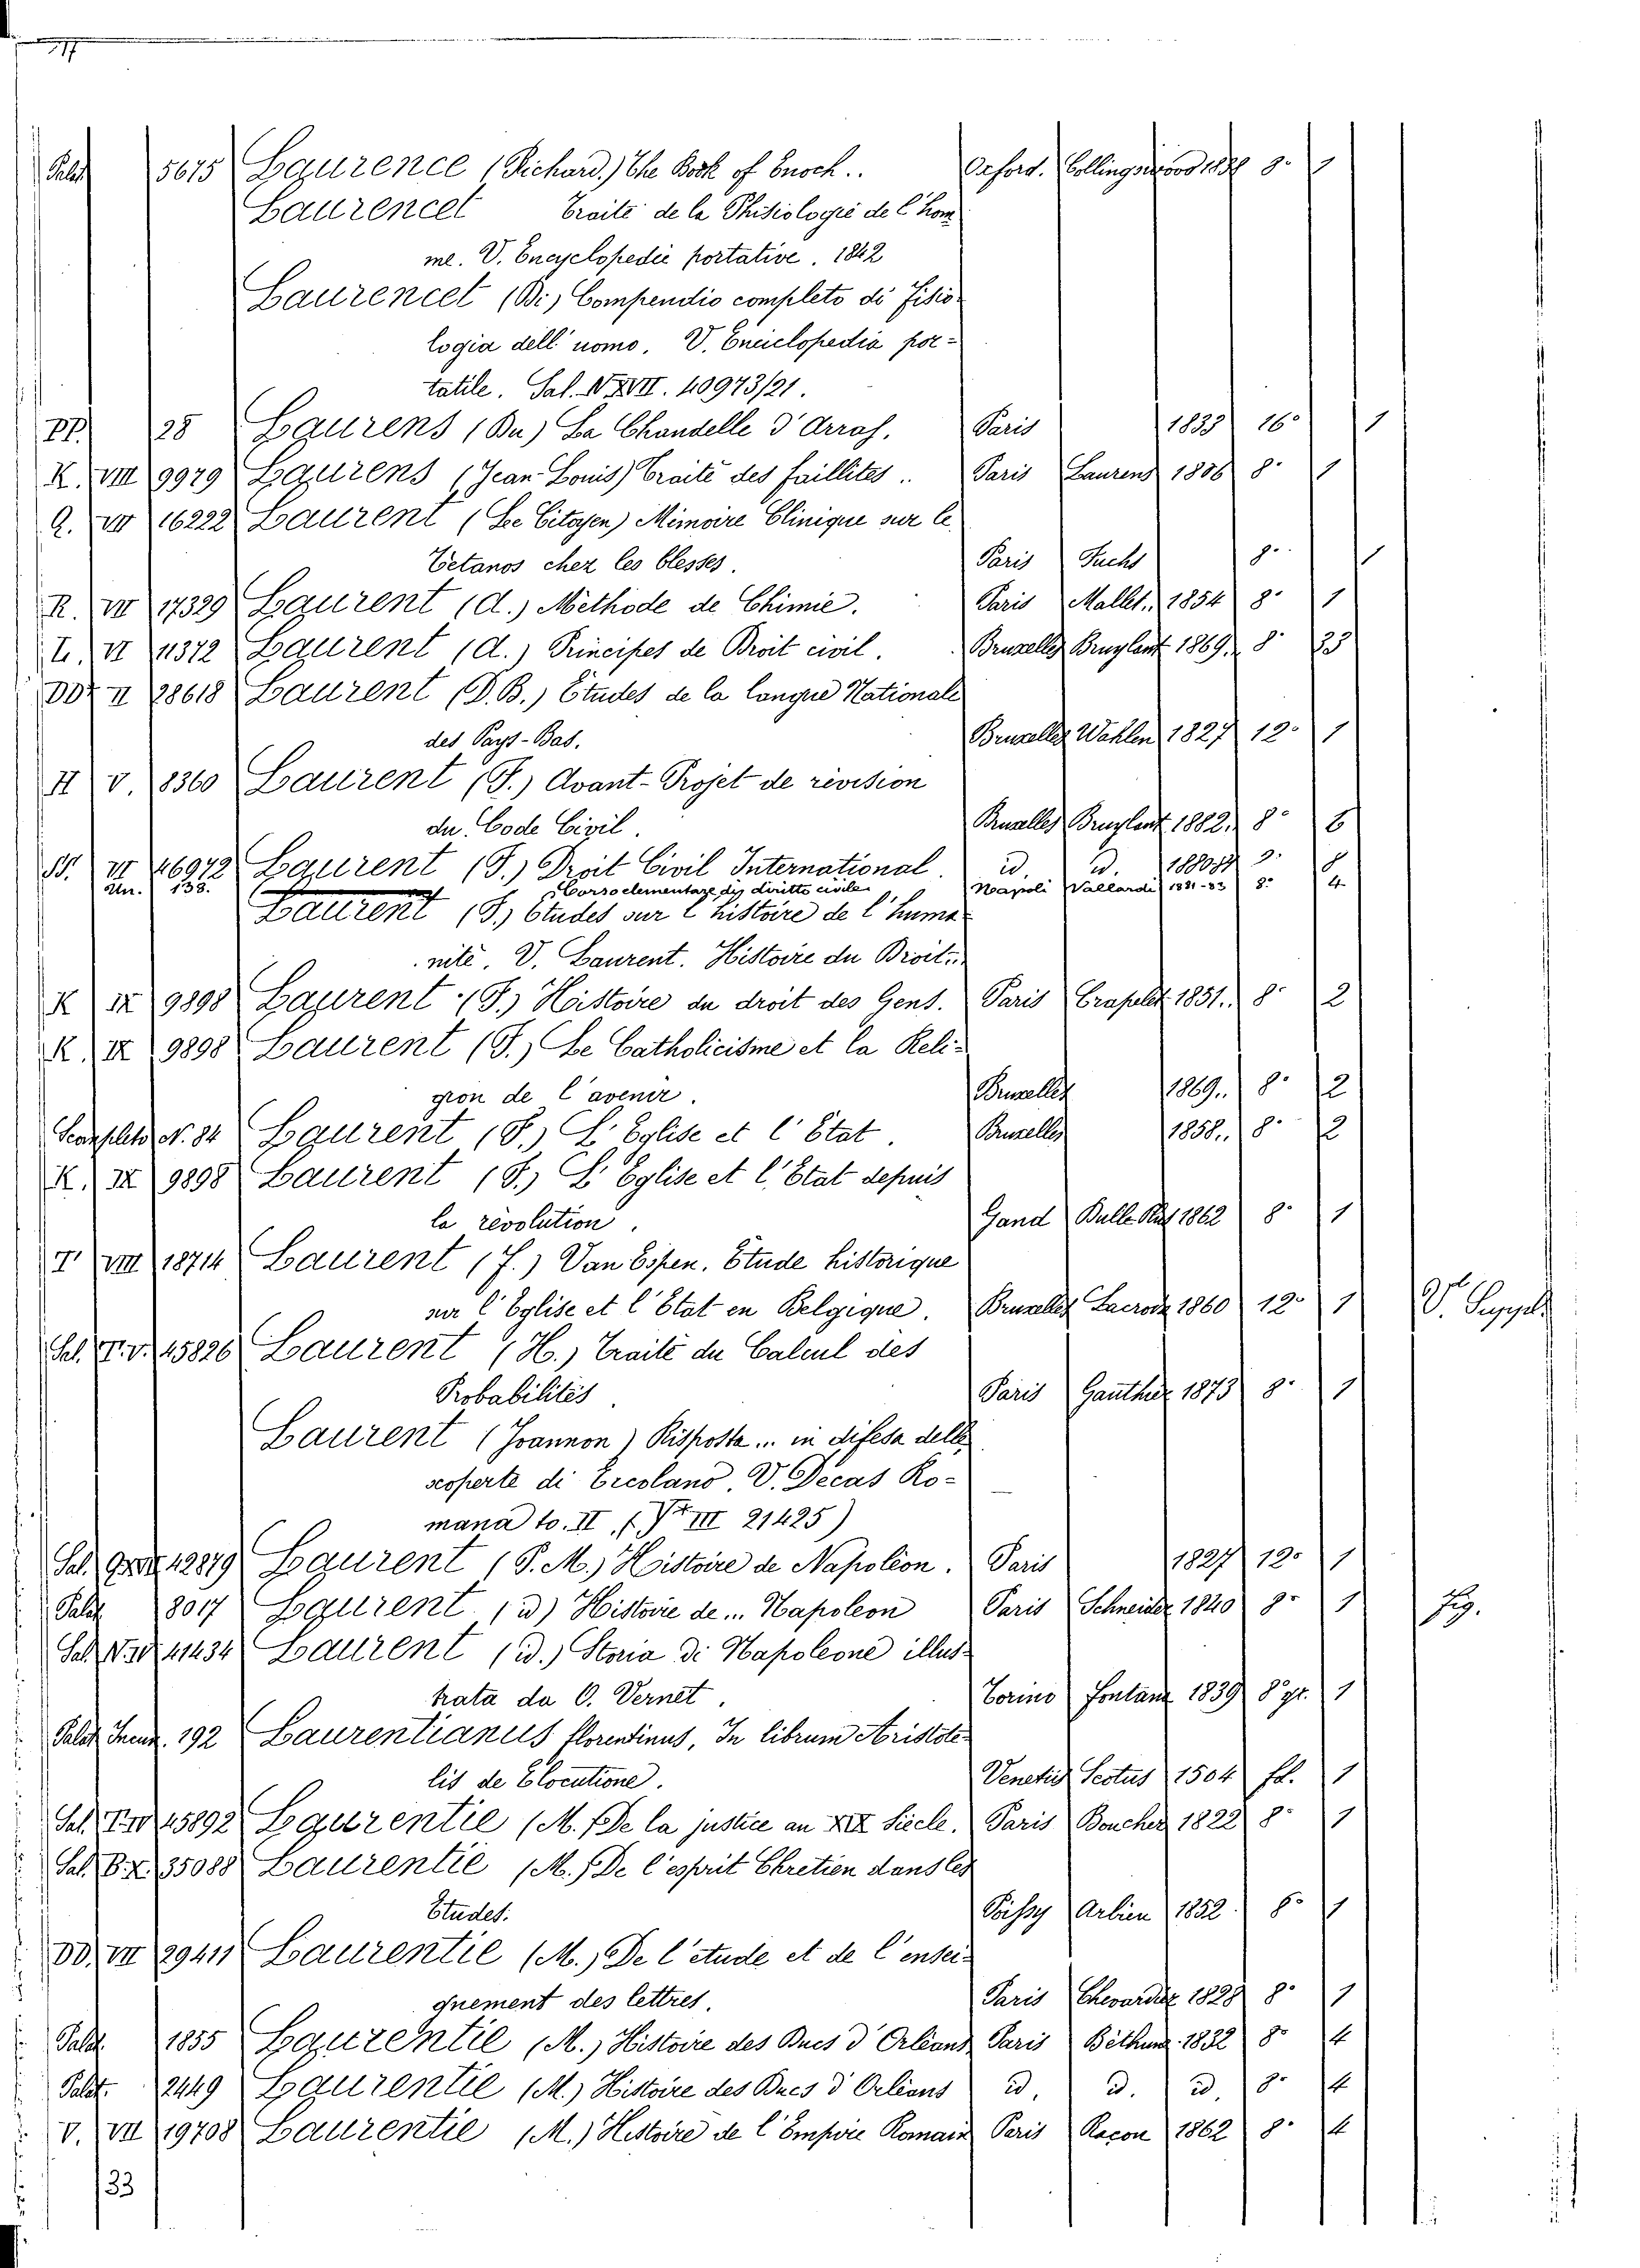 Palat 5675 Laurence (Richard.) The Book of Enoch.. Oxford. Collingswood 8° 1
Laurencet Traité de la Phisiologie de l'hom
me. V. Encyclopedie portative. 1842
Laurencet (Di) Compendio completo di fisio
logia dell' uomo. V. Enciclopedia por=
tatile. Sal. N XVII. 40973/21.
PP. 28 Laurens (Du) La Chandelle d'Arras. Paris 1833 16° 1
K. VIII 9979 Laurens (Jean-Louis) Traité des faillites.. Paris Laurens 1806 8° 1
Q. VII 16222 Laurent (Le Citoyen) Mémoire Clinique sur le
Tetanos chez les blesses. Paris Fuchs 8° 1
R. VII 17329 Laurent (A.) Méthode de Chimie. Paris Mallet.. 1854 8° 1
L. VI 11372 Laurent (A.) Principes de Droit civil. Bruxelles Bruylant 1869.. 8° 33
DDr II 28618 Laurent (P. B.) Etudes de la langue Nationale
des Pays-Bas. Bruxelles Wahlen 1827 12° 1
H V. 8360 Laurent (F.) Avant-Projet de révision
du Code Civil. Bruxelles Bruylant 1882.. 8° 6
VI 46972 Laurent (F.) Droit Civil International. id. id. 1880 8° 8
Un. 138. Corso elementare di diritto civile Napoli Vallardi 1881-83 8° 4
Laurent (F.) Etudes sur l'histoire de l'huma
nité. V. Laurent. Histoire du Droit..
K IX 9898 Laurent (F.) Histoire du droit des Gens. Paris Crapelet 1851.. 8° 2
K. IX 9898 Laurent (F.) Le Catholicisme et la Reli=
gion de l'avenir. Bruxelles 1869.. 8° 2
N. 84 Laurent (F.) L'Eglise et l'Etat. Bruxelles 1858.. 8° 2
K. IX 9898 Laurent (F.) L'Eglise et l'Etat depuis
la révolution. Gand 1862 8° 1
T. VIII 18714 Laurent (F.) Van Espen. Etude historique
sur l'Eglise et l'Etat en Belgique. Bruxelles Lacroix 1860 12° 1 V. Suppl.
Sal. V. 45826 Laurent (H.) Traité du Calcul des
Probabilités. Paris Gauthier 1873 8° 1
Laurent (Joannon) Risposta... in difesa delle
scoperte di Ercolano. V. Decas Ro=
mana to. II. (Vr III 21425)
Sal. 42879 Laurent (P. M.) Histoire de Napoléon. Paris 1827 12° 1
Palat 8017 Laurent (id) Histoire de... Napoleon Paris Schneider 1840 8° 1 Fig.
Sal. 41434 Laurent (id.) Storia di Napoleone illus-
trata da O. Vernet. Torino Fontana 1839 8° gr. 1
Palat Incun. 192 Laurentianus florentinus, In librum Aristote=
lis de Elocutione. Venetiis Scotus 1504 fol. 1
Sal. 45892 Laurentie (M.) De la justice au XIX Siècle. Paris Boucher 1822 8° 1
Sal. B. X. 35088 Laurentie (M.) De l'esprit Chretien dans les
Etudes. Poissy Arbieu 1852. 8° 1
DD. VII 29411 Laurentie (M.) De l'étude et de l'ensei=
gnement des lettres. Paris 1828 8° 1
Palat. 1855 Laurentie (M.) Histoire des Ducs d'Orléans Paris Béthune 1832 8° 4
Palat. 2449 Laurentie (M.) Histoire des Ducs d'Orléans id. id. id. 8° 4
V. VII 19708 Laurentie (M.) Histoire de l'Empire Romain Paris Racon 1862 8° 4
33